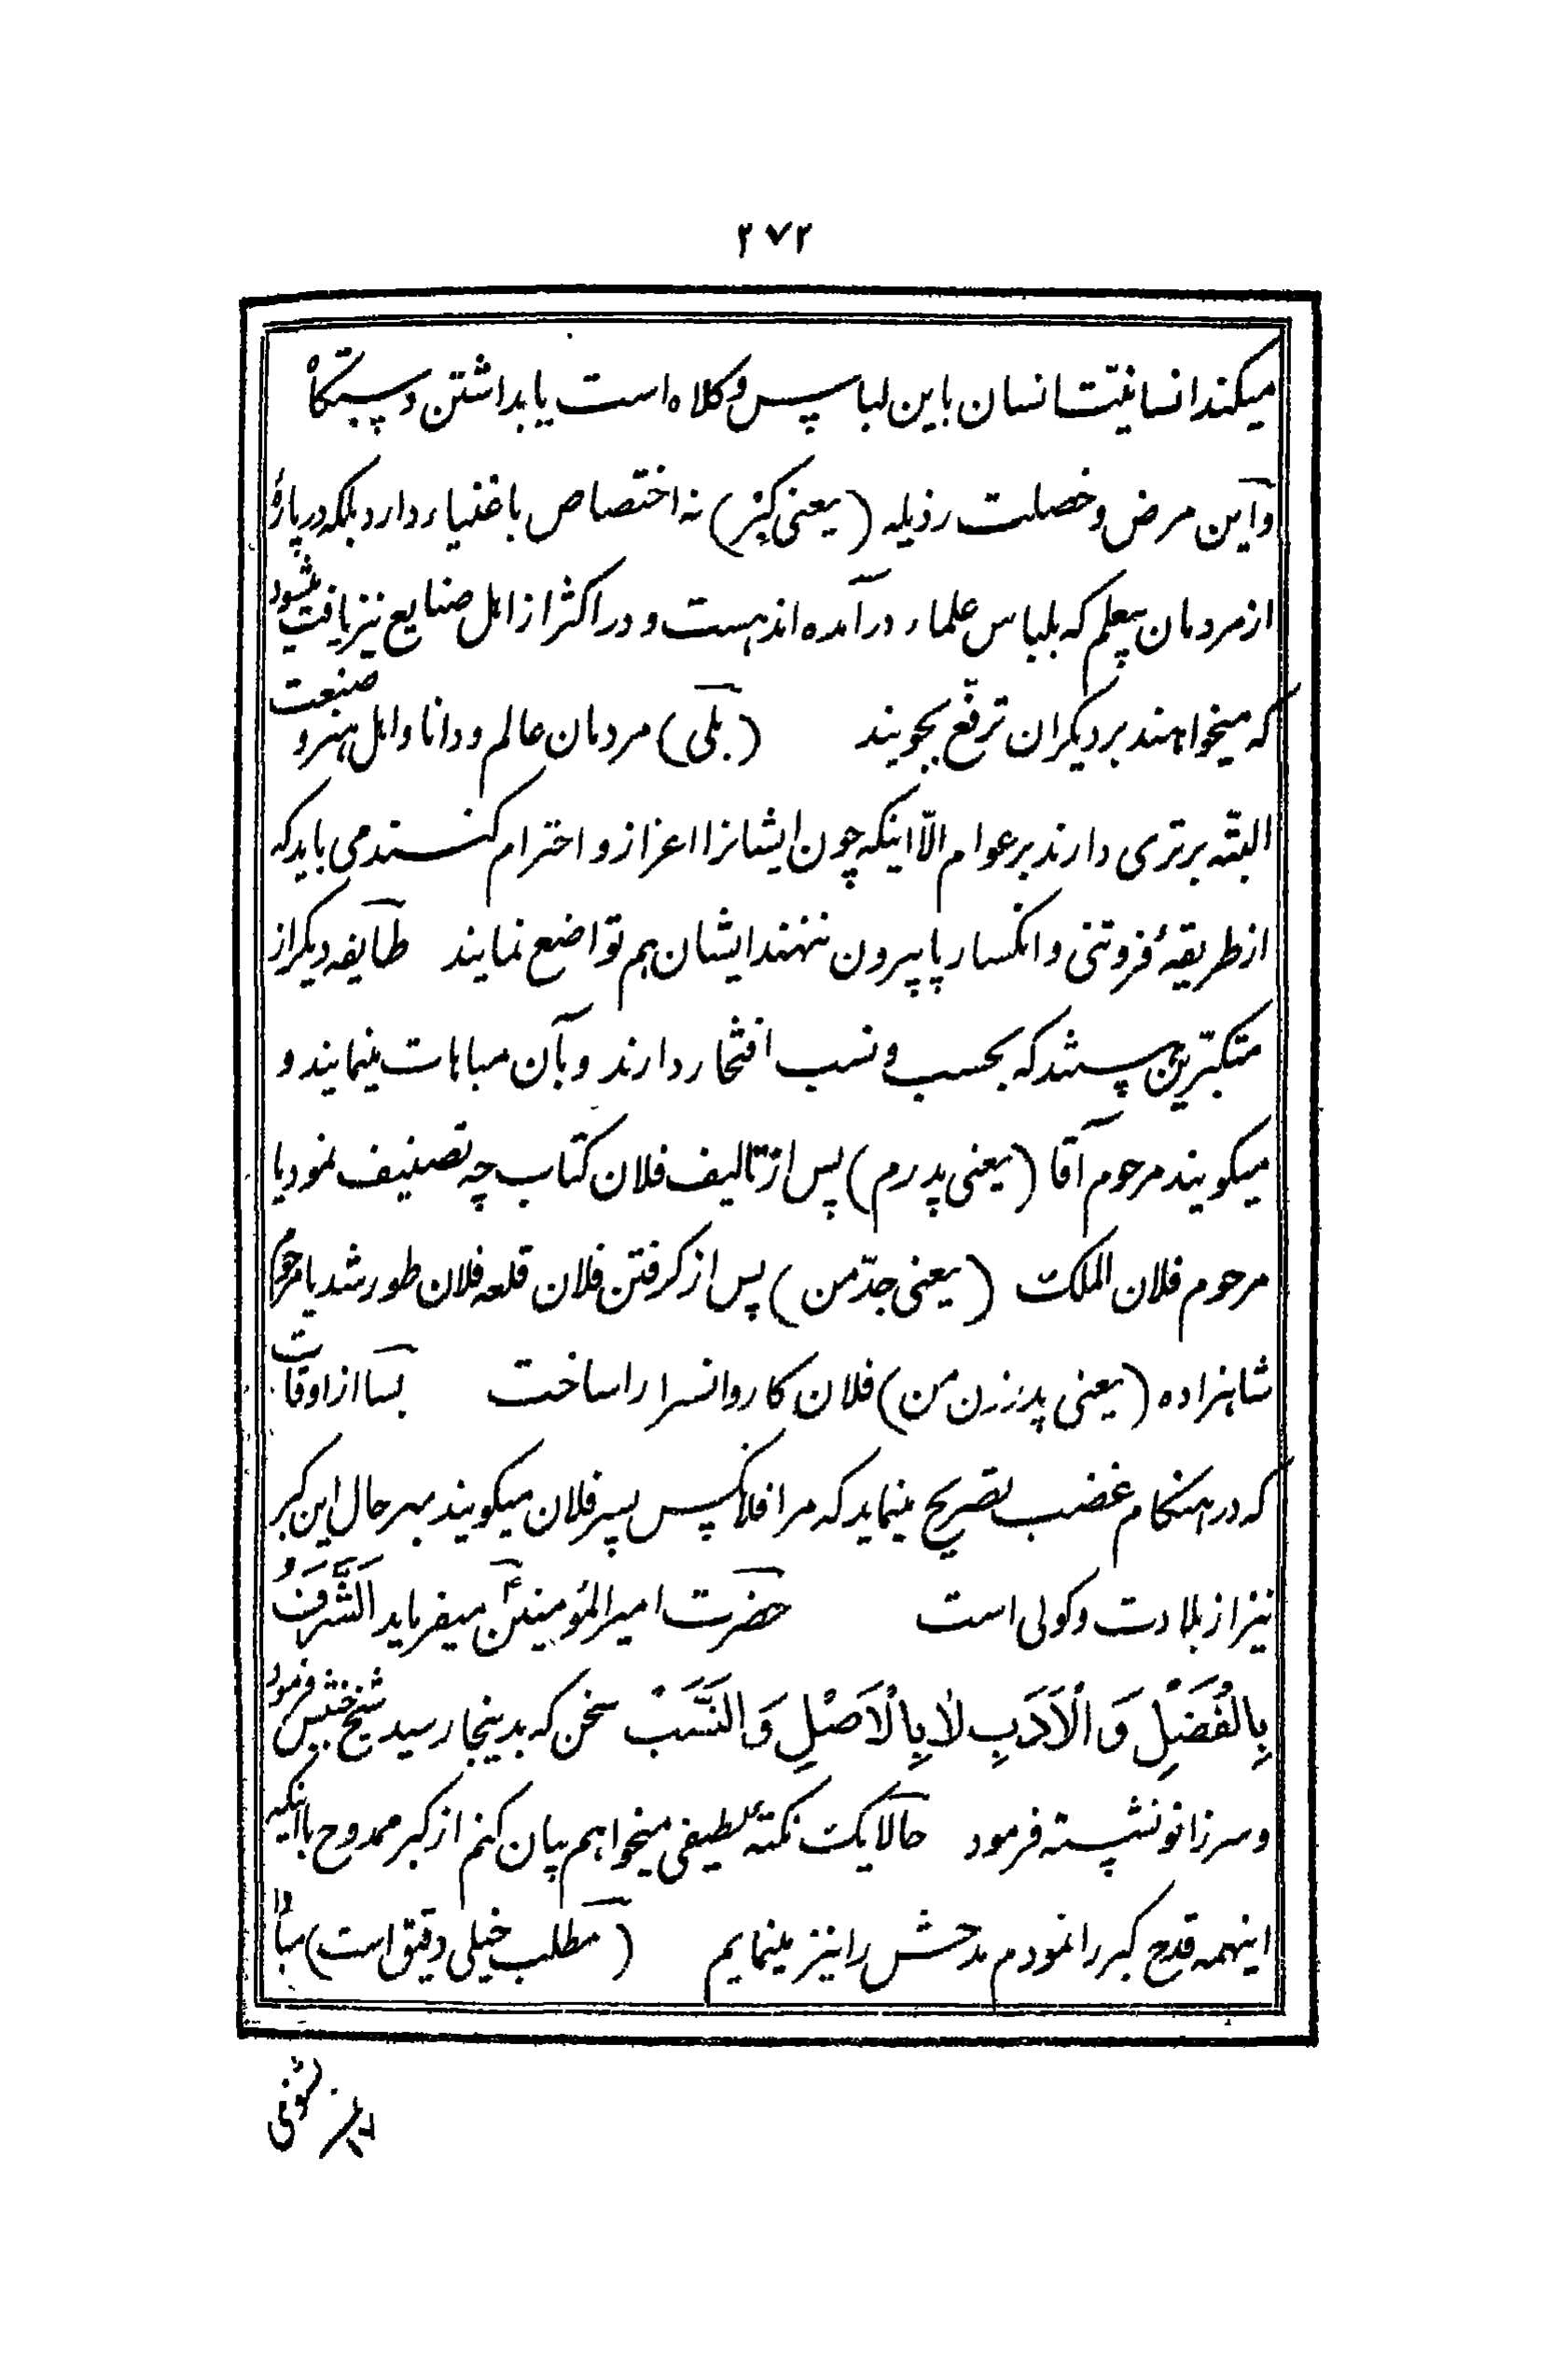 ۲۷۲
میکند انسانیّت انسان باین لباس و کلاه است یا بداشتن دستگاه
و این مرض و خصلت رذیله (یعنی کِبْر) نه اختصاص باغنیاء دارد بلکه در پارهٔ
از مردمان بیعلم که بلباس علماء درآمده‌اند هست و در اکثر از اهل صنایع نیز یافت میشود
که میخواهند بر دیکران ترفّع بجویند (بلی) مردمان عالم و دانا و اهل هنر و صنعت
البتّه برتری دارند بر عوام الّا اینکه چون ایشانرا اعزاز و احترام کنند می باید که
از طریقهٔ فروتنی و انکسار پا بیرون ننهند ایشان هم تواضع نمایند طایفه دیکر از
متکبّرین هستند که بحسب و نسب افتخار دارند و بآن مباهات مینمایند و
میکویند مرحوم آقا (یعنی پدرم) پس از تالیف فلان کتاب چه تصنیف نمود یا
مرحوم فلان الملک (یعنی جدّ من) پس از کرفتن فلان قلعه فلان طور شد یا مرحوم
شاهزاده (یعنی پدر زن من) فلان کاروانسرا را ساخت بسا از اوقات
که در هنکام غضب تصریح مینماید که مرا فلانکس پسر فلان میکویند بهر حال این کبر
نیز از بلادت و کولی است حضرت امیر المؤمنین ع میفرماید اَلشَّرَفُ
بِالْفَضْلِ وَ الْاَدَبِ لٰا بِالْاَصْلِ وَ النَّسَبْ سخن که بدینجا رسید شیخ فرمود
و سر زانو نشسته فرمود حالا یک نکتهٔ لطیفی میخواهم بیان کنم از کبر ممدوح با اینکه
اینهمه قدح کبر را نمودم مدحش را نیز مینمایم (مطلب خیلی دقیق است) مبادا